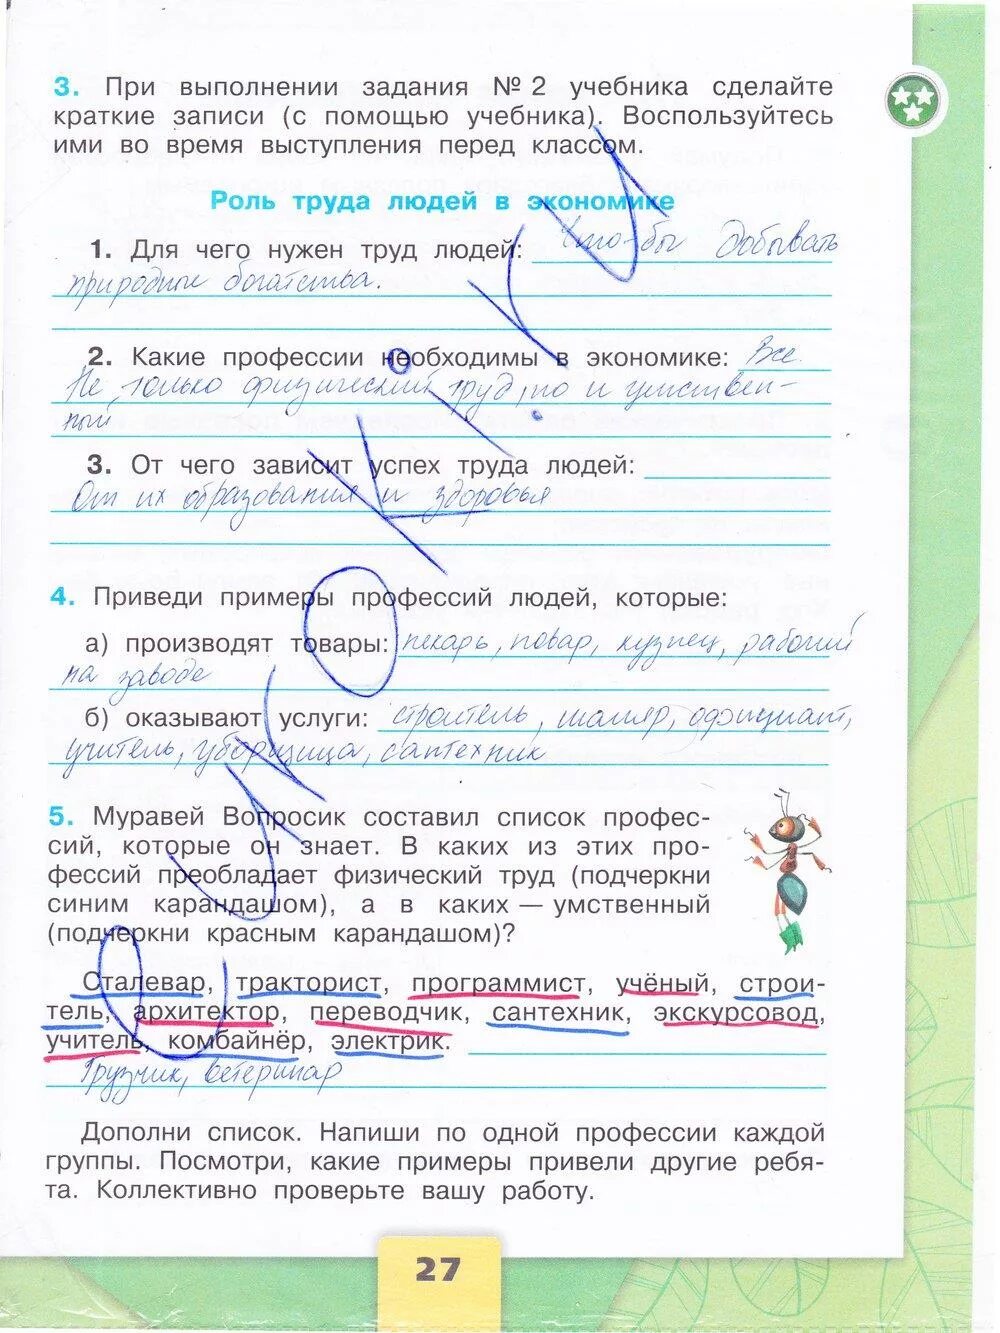 3. При выполнении задания № 2 учебника сделайте
краткие записи (с помощью учебника). Воспользуйтесь
ими во время выступления перед классом.
Роль труда людей в экономике
1. Для чего нужен труд людей: Что-бы добывать
природные богатства.
2. Какие профессии необходимы в экономике: Все.
Не только физический труд, но и умствен-
ный
3. От чего зависит успех труда людей:
От их образования и здоровья
4. Приведи примеры профессий людей, которые:
а) производят товары: пекарь, повар, кузнец, рабочий
на заводе
б) оказывают услуги: строитель, маляр, официант,
учитель, уборщица, сантехник
5. Муравей Вопросик составил список профес-
сий, которые он знает. В каких из этих про-
фессий преобладает физический труд (подчеркни
синим карандашом), а в каких — умственный
(подчеркни красным карандашом)?
Сталевар, тракторист, программист, учёный, строи-
тель, архитектор, переводчик, сантехник, экскурсовод,
учитель, комбайнёр, электрик.
Грузчик, ветеринар
Дополни список. Напиши по одной профессии каждой
группы. Посмотри, какие примеры привели другие ребя-
та. Коллективно проверьте вашу работу.
27
e-uroki.ru